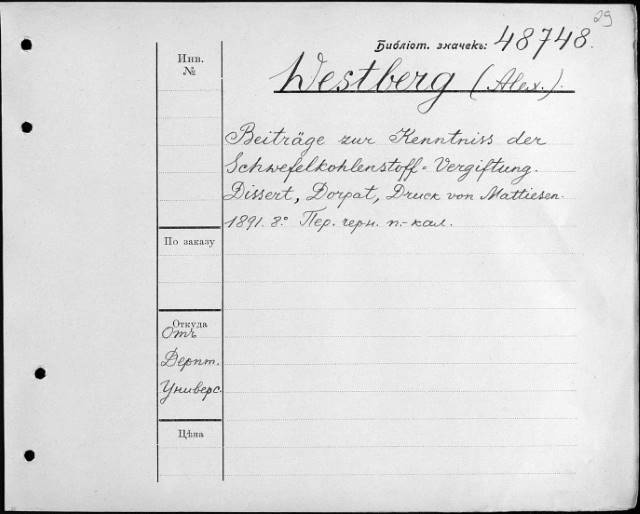 29
Библіот. значекъ: 48748.
Инв.
№
Westberg (Alex.).
Beiträge zur Kenntniss der
Schwefelkohlenstoff-Vergiftung.
Dissert, Dorpat, Druck von Mattiesen.
1891. 8º Пер. черн. п.-кал.
По заказу
Откуда
Отъ
Дерпт.
Универс.
Цѣна